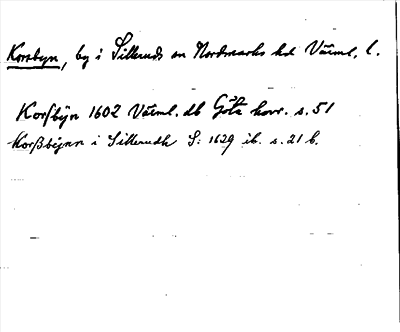 Korsbyn, by i Silleruds sn Nordmarks hd Värml. l.
Korsbÿn 1602 Värml. db Göta horr. s. 51
Korßbÿnn i Sillerudh S: 1629 ib. s. 21 b.